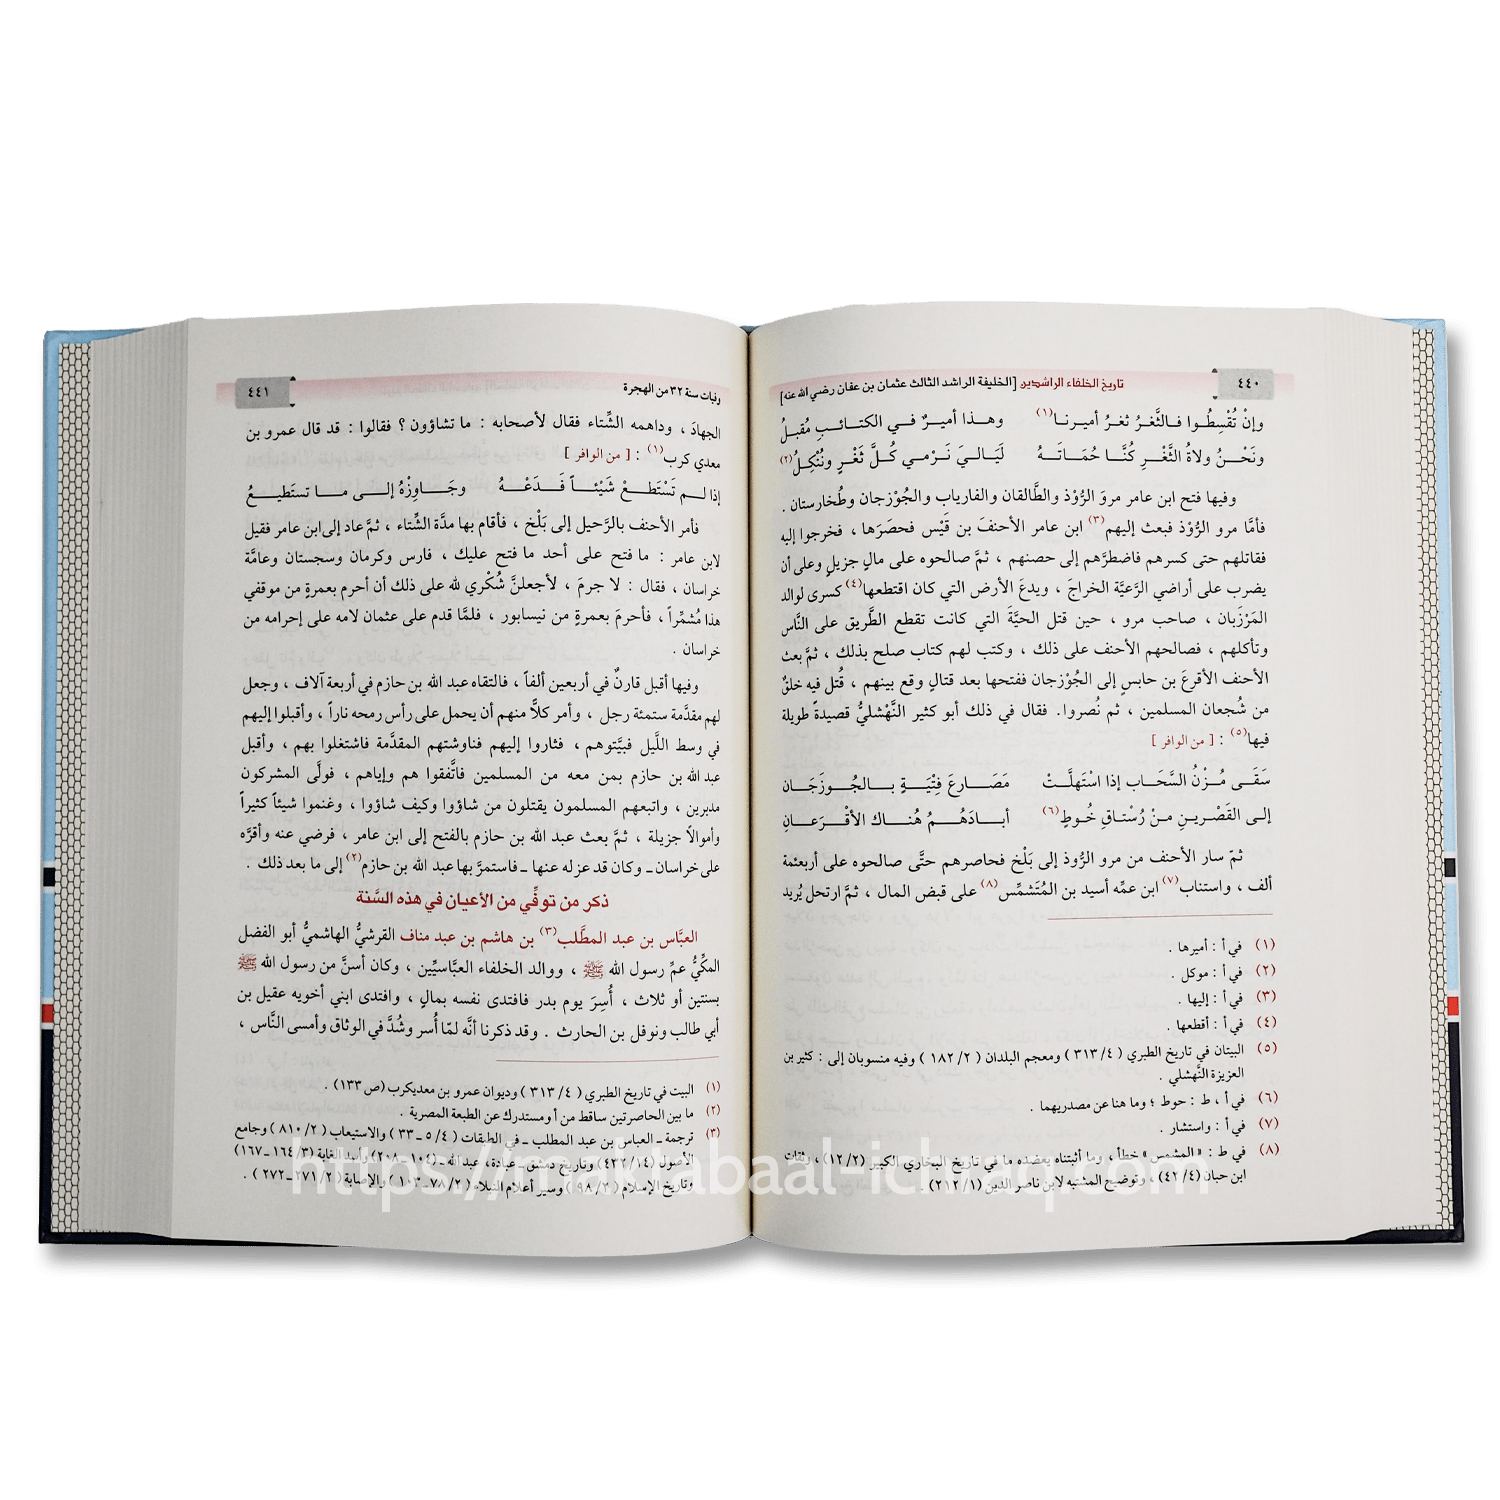 ٤٤٠
تاريخ الخلفاء الراشدين [الخليفة الراشد الثالث عثمان بن عفان رضي الله عنه]
وإنْ تُقْسِطُوا فـالثَّغرُ ثغرُ أميرنـا(١) وهـذا أميرٌ فـي الكتـائـبِ مُقبلُ
ونَحْـنُ ولاةُ الثَّغْـرِ كُنَّـا حُمَـاتَـهُ لَيَـالـيَ نَـرْمـي كُـلَّ ثَغْـرٍ ونُنْكِـلُ(٢)
وفيها فتح ابن عامر مروَ الرُّوْذ والطَّالقان والفارياب والجُوْزجان وطُخارستان .
فأمَّا مرو الرُّوْذ فبعث إليهم(٣) ابن عامر الأحنفَ بن قَيْس فحصَرَها ، فخرجوا إليه
فقاتلهم حتى كسرهم فاضطرَّهم إلى حصنهم ، ثمَّ صالحوه على مالٍ جزيلٍ وعلى أن
يضرب على أراضي الرَّعيَّة الخراجَ ، ويدعَ الأرض التي كان اقتطعها(٤) كسرى لوالد
المَرْزَبان ، صاحب مرو ، حين قتل الحيَّةَ التي كانت تقطع الطَّريق على النَّاس
وتأكلهم ، فصالحهم الأحنف على ذلك ، وكتب لهم كتاب صلح بذلك ، ثمَّ بعث
الأحنف الأقرعَ بن حابسٍ إلى الجُوْزجان ففتحها بعد قتالٍ وقع بينهم ، قُتل فيه خلقٌ
من شُجعان المسلمين ، ثم نُصروا. فقال في ذلك أبو كثير النَّهْشليُّ قصيدةً طويلة
فيها(٥) : [ من الوافر ]
سَقَـى مُـزْنُ السَّحَـاب إذا اسْتَهلَّـتْ مَصَـارعَ فِتْيَـةٍ بـالجُـوزَجَـان
إلـى القَصْـريـنِ مـنْ رُسْتـاقِ خُـوطٍ(٦) أبـادَهُـمُ هُنـاك الأقْـرَعـانِ
ثمّ سار الأحنف من مرو الرُّوذ إلى بَلْخ فحاصرهم حتَّى صالحوه على أربعمئة
ألف ، واستناب(٧) ابن عمِّه أسيد بن المُتَشمِّس(٨) على قبض المال ، ثمَّ ارتحل يُريد
(١) في أ : أميرها .
(٢) في أ : موكل .
(٣) في أ : إليها .
(٤) في أ : أقطعها .
(٥) البيتان في تاريخ الطبري ( ٤/ ٣١٣ ) ومعجم البلدان ( ٢/ ١٨٢ ) وفيه منسوبان إلى : كثير بن
العزيزة النَّهشلي .
(٦) في أ ، ط : حوط ؛ وما هنا عن مصدريهما .
(٧) في أ : واستشار .
(٨) في ط : « المشمس » خطأ ، وما أثبتناه يعضده ما في تاريخ البخاري الكبير (٢/ ١٢) ، وثقات
ابن حبان (٤/ ٤٢) ، وتوضيح المشتبه لابن ناصر الدين (١/ ٢١٢) .
وفيات سنة ٣٢ من الهجرة
٤٤١
الجهادَ ، وداهمه الشِّتاء فقال لأصحابه : ما تشاؤون ؟ فقالوا : قد قال عمرو بن
معدي كرب(١) : [ من الوافر ]
إذا لـم تَسْتَطـعْ شَيْئـاً فَـدَعْـهُ وجَـاوِزْهُ إلـى مـا تستَطيـعُ
فأمر الأحنف بالرَّحيل إلى بَلْخ ، فأقام بها مدَّة الشِّتاء ، ثمَّ عاد إلى ابن عامر فقيل
لابن عامر : ما فتح على أحد ما فتح عليك ، فارس وكرمان وسجستان وعامَّة
خراسان ، فقال : لا جرمَ ، لأجعلنَّ شُكْري لله على ذلك أن أحرم بعمرةٍ من موقفي
هذا مُشمِّراً ، فأحرمَ بعمرةٍ من نيسابور ، فلمَّا قدم على عثمان لامه على إحرامه من
خراسان .
وفيها أقبل قارنٌ في أربعين ألفاً ، فالتقاه عبد الله بن حازم في أربعة آلاف ، وجعل
لهم مقدَّمة ستمئة رجل ، وأمر كلاَّ منهم أن يحمل على رأس رمحه ناراً ، وأقبلوا إليهم
في وسط اللَّيل فبيَّتوهم ، فثاروا إليهم فناوشتهم المقدَّمة فاشتغلوا بهم ، وأقبل
عبد الله بن حازم بمن معه من المسلمين فاتَّفقوا هم وإياهم ، فولَّى المشركون
مدبرين ، واتبعهم المسلمون يقتلون من شاؤوا وكيف شاؤوا ، وغنموا شيئاً كثيراً
وأموالاً جزيلة ، ثمَّ بعث عبد الله بن حازم بالفتح إلى ابن عامر ، فرضي عنه وأقرَّه
على خراسان ـ وكان قد عزله عنها ـ فاستمرَّ بها عبد الله بن حازم(٢) إلى ما بعد ذلك .
ذكر من توفِّي من الأعيان في هذه السَّنة
العبَّاس بن عبد المطَّلب(٣) بن هاشم بن عبد مناف القرشيُّ الهاشميُّ أبو الفضل
المكِّيُّ عمِّ رسول الله ﷺ ، ووالد الخلفاء العبَّاسيِّين ، وكان أسنَّ من رسول الله ﷺ
بسنتين أو ثلاث ، أُسِرَ يوم بدر فافتدى نفسه بمالٍ ، وافتدى ابني أخويه عقيل بن
أبي طالب ونوفل بن الحارث . وقد ذكرنا أنَّه لمّا أُسر وشُدَّ في الوثاق وأمسى النَّاس ،
(١) البيت في تاريخ الطبري ( ٤/ ٣١٣ ) وديوان عمرو بن معديكرب (ص ١٣٣) .
(٢) ما بين الحاصرتين ساقط من أ ومستدرك عن الطبعة المصرية .
(٣) ترجمة ـ العباس بن عبد المطلب ـ في الطبقات ( ٤/ ٥ ـ ٣٣ ) والاستيعاب ( ٢/ ٨١٠ ) وجامع
الأصول وتاريخ دمشق ـ عبادة ، عبد الله ـ (١٠٤ ـ ٢٠٨) وأسد الغابة (٣/ ١٦٤ ـ ١٦٧)
وتاريخ الإسلام ( ٢/ ٩٨ ) وسير أعلام النبلاء ( ٢/ ٧٨ ـ ١٠٣ ) والإصابة ( ٢/ ٢٧١ ـ ٢٧٢ ) .